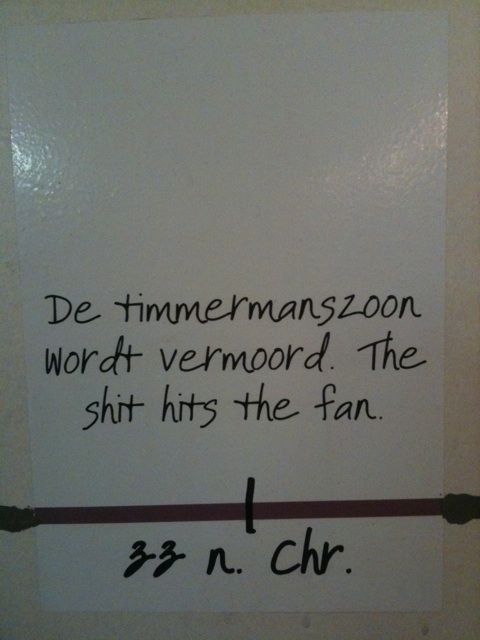 De timmermanszoon
wordt vermoord. The
shit hits the fan.
33 n. Chr.